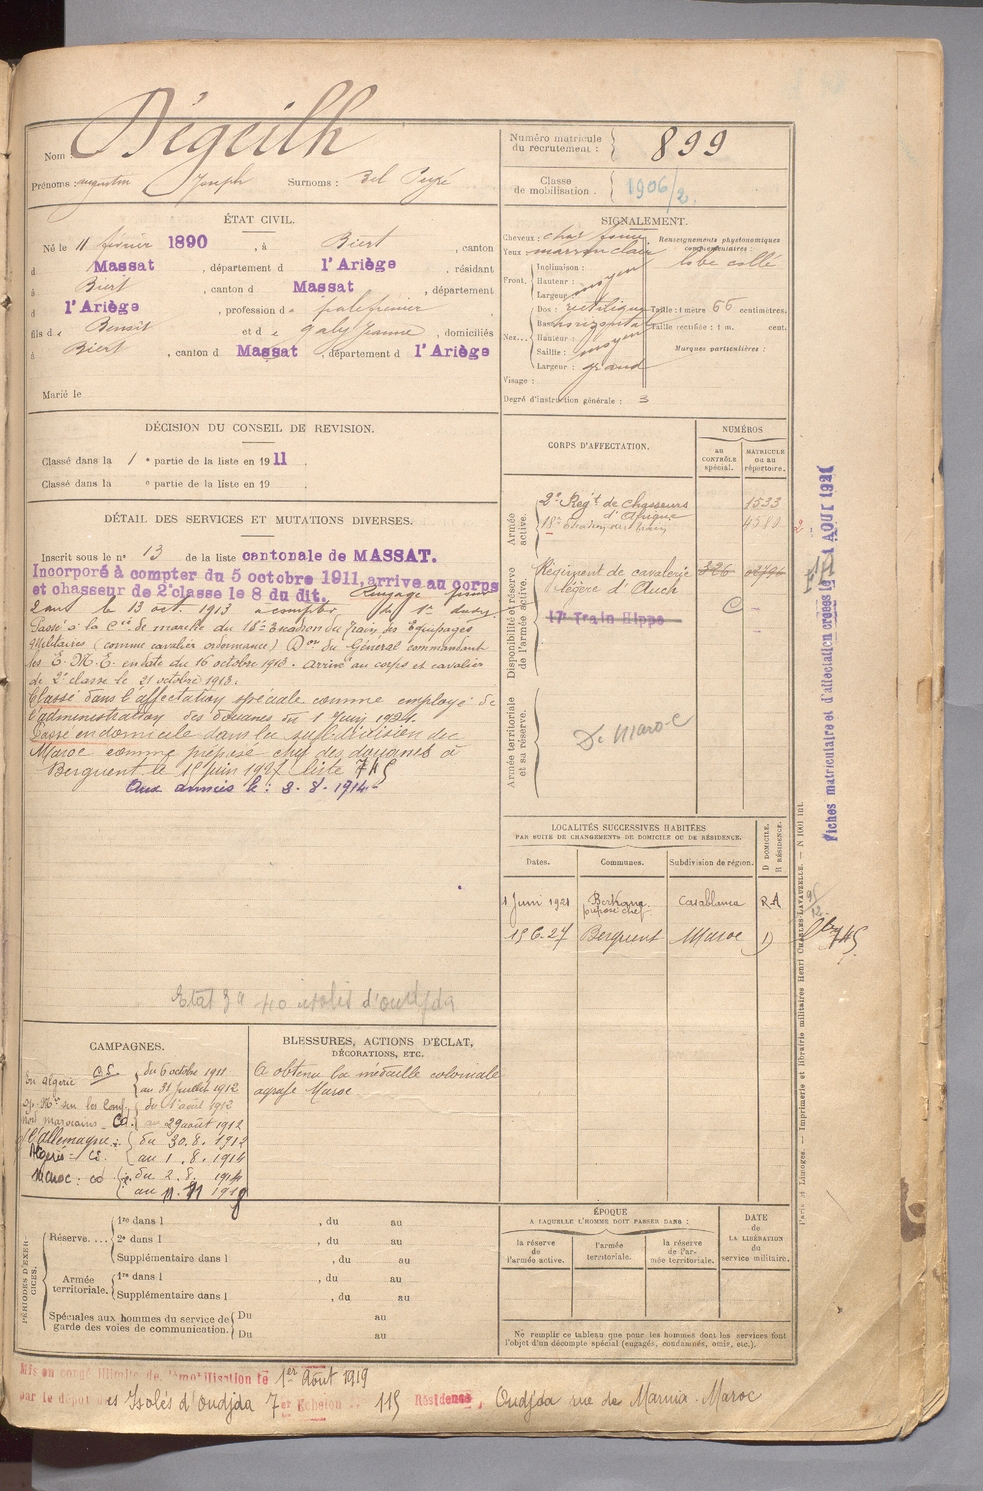 Nom Dégeilh
Prénoms : Augustin Joseph Surnoms : Bel Peyré
Numéro matricule du recrutement : 899
Classe de mobilisation . 1906/2
ÉTAT CIVIL.
Né le 11 février 1890 , à Biert , canton
d Massat , département d l'Ariège , résidant
à Biert , canton d Massat , département
d l'Ariège , profession de palefrenier
fils de Benoit et de Galy Jeanne , domiciliés
à Biert , canton d Massat , département d l'Ariège
Marié le
SIGNALEMENT.
Cheveux : chat. foncé
Yeux : marron clair
Renseignements physionomiques complémentaires :
lobe collé
Front.
Inclinaison :
Hauteur : moyen
Largeur
Nez...
Dos : rectiligne
Base horizontal
Hauteur :
Saillie : moyen
Largeur : grand
Taille : 1 mètre 66 centimètres.
Taille rectifiée : 1 m. cent.
Marques particulières :
Visage :
Degré d'instruction générale : 3
DÉCISION DU CONSEIL DE REVISION.
Classé dans la 1 e partie de la liste en 1911 .
Classé dans la e partie de la liste en 19 .
DÉTAIL DES SERVICES ET MUTATIONS DIVERSES.
Inscrit sous le n° 13 de la liste cantonale de MASSAT.
Incorporé à compter du 5 octobre 1911, arrive au corps
et chasseur de 2e classe le 8 du dit. Rengagé pour
2 ans le 13 oct. 1913 à compter du 1er dudit
Passé à la Cie de marche du 18e Escadron du Train des Equipages
Militaires (comme cavalier ordonnance) Don du Général commandant
les E. M. E. en date du 16 octobre 1913. Arrivé au corps et cavalier
de 2e classe le 21 octobre 1913.
Classé dans l'affectation spéciale comme employé de
l'administration des douanes du 1 Juin 1924.
Passé en domicile dans la subdivision du
Maroc comme préposé chef des douanes à
Berguent le 15 juin 1927 liste 745
Aux armées le : 2-8-1914
Etat 3a 40 isolés d'Oudjda
CORPS D'AFFECTATION.
NUMÉROS
au CONTRÔLE spécial.
MATRICULE ou au répertoire.
Armée active.
2e Regt de chasseurs d'Afrique 1533
18e Escadron du Train
Disponibilité et réserve de l'armée active.
Régiment de cavalerie légère d'Auch 326
17e Train Hippo
Armée territoriale et sa réserve.
D. Maroc
Fiches matriculaire et d'affectation créées le 1 AOUT 1921
LOCALITÉS SUCCESSIVES HABITÉES
PAR SUITE DE CHANGEMENTS DE DOMICILE OU DE RÉSIDENCE.
Dates. Communes. Subdivision de région. D DOMICILE. R RÉSIDENCE.
1 Juin 1921 Berkane préposé chef Casablanca RA
15 6-27 Berguent Maroc D
745
CAMPAGNES.
En Algérie CS. du 6 octobre 1911
au 31 juillet 1912
du 1 août 1912
marocains - Cd. au 29 août 1912
du 30.8.1912
Algérie : CS. au 1.8.1914
Maroc : CD du 2.8.1914
au 11.11 1918
C/l'Allemagne :
BLESSURES, ACTIONS D'ÉCLAT, DÉCORATIONS, ETC.
A obtenu la médaille coloniale
agrafe Maroc
PÉRIODES D'EXERCICES.
Réserve....
1re dans l , du au
2e dans l , du au
Supplémentaire dans l , du au
Armée territoriale.
1re dans l , du au
Supplémentaire dans l , du au
Spéciales aux hommes du service de garde des voies de communication.
Du au
Du au
ÉPOQUE
A LAQUELLE L'HOMME DOIT PASSER DANS :
la réserve de l'armée active.
l'armée territoriale.
la réserve de l'armée territoriale.
DATE de LA LIBÉRATION du service militaire.
Ne remplir ce tableau que pour les hommes dont les services font
l'objet d'un décompte spécial (engagés, condamnés, omis, etc.).
Paris et Limoges. — Imprimerie et librairie militaires Henri CHARLES-LAVAUZELLE. — N 1001 int.
Mis en congé illimité de démobilisation le 1er Août 1919
par le dépôt des Isolés d'Oudjda 7e Echelon n° 115 Résidence, Oudjda rue de Marnia - Maroc